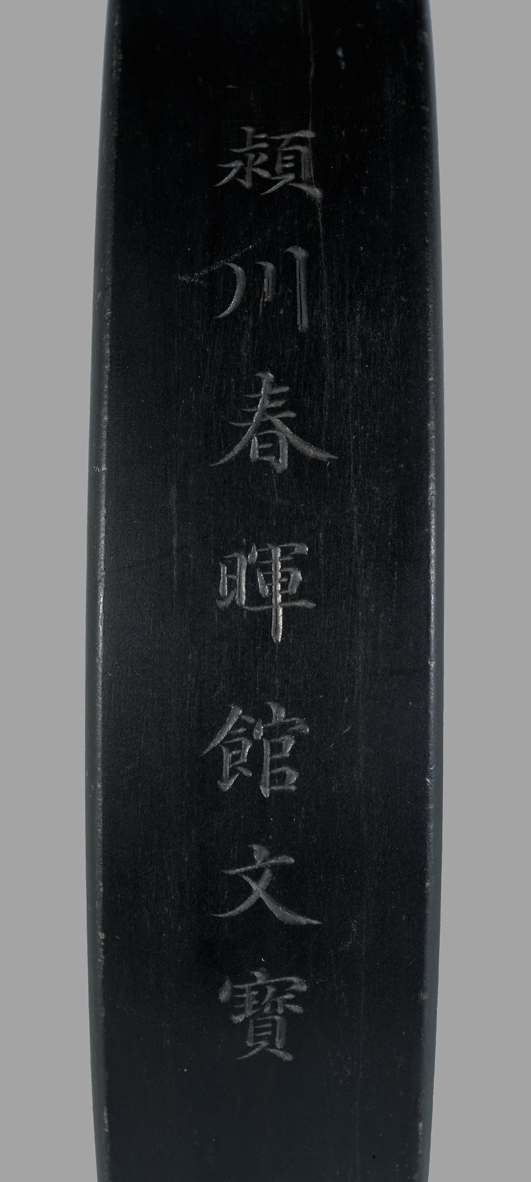 潁川春暉館文寶